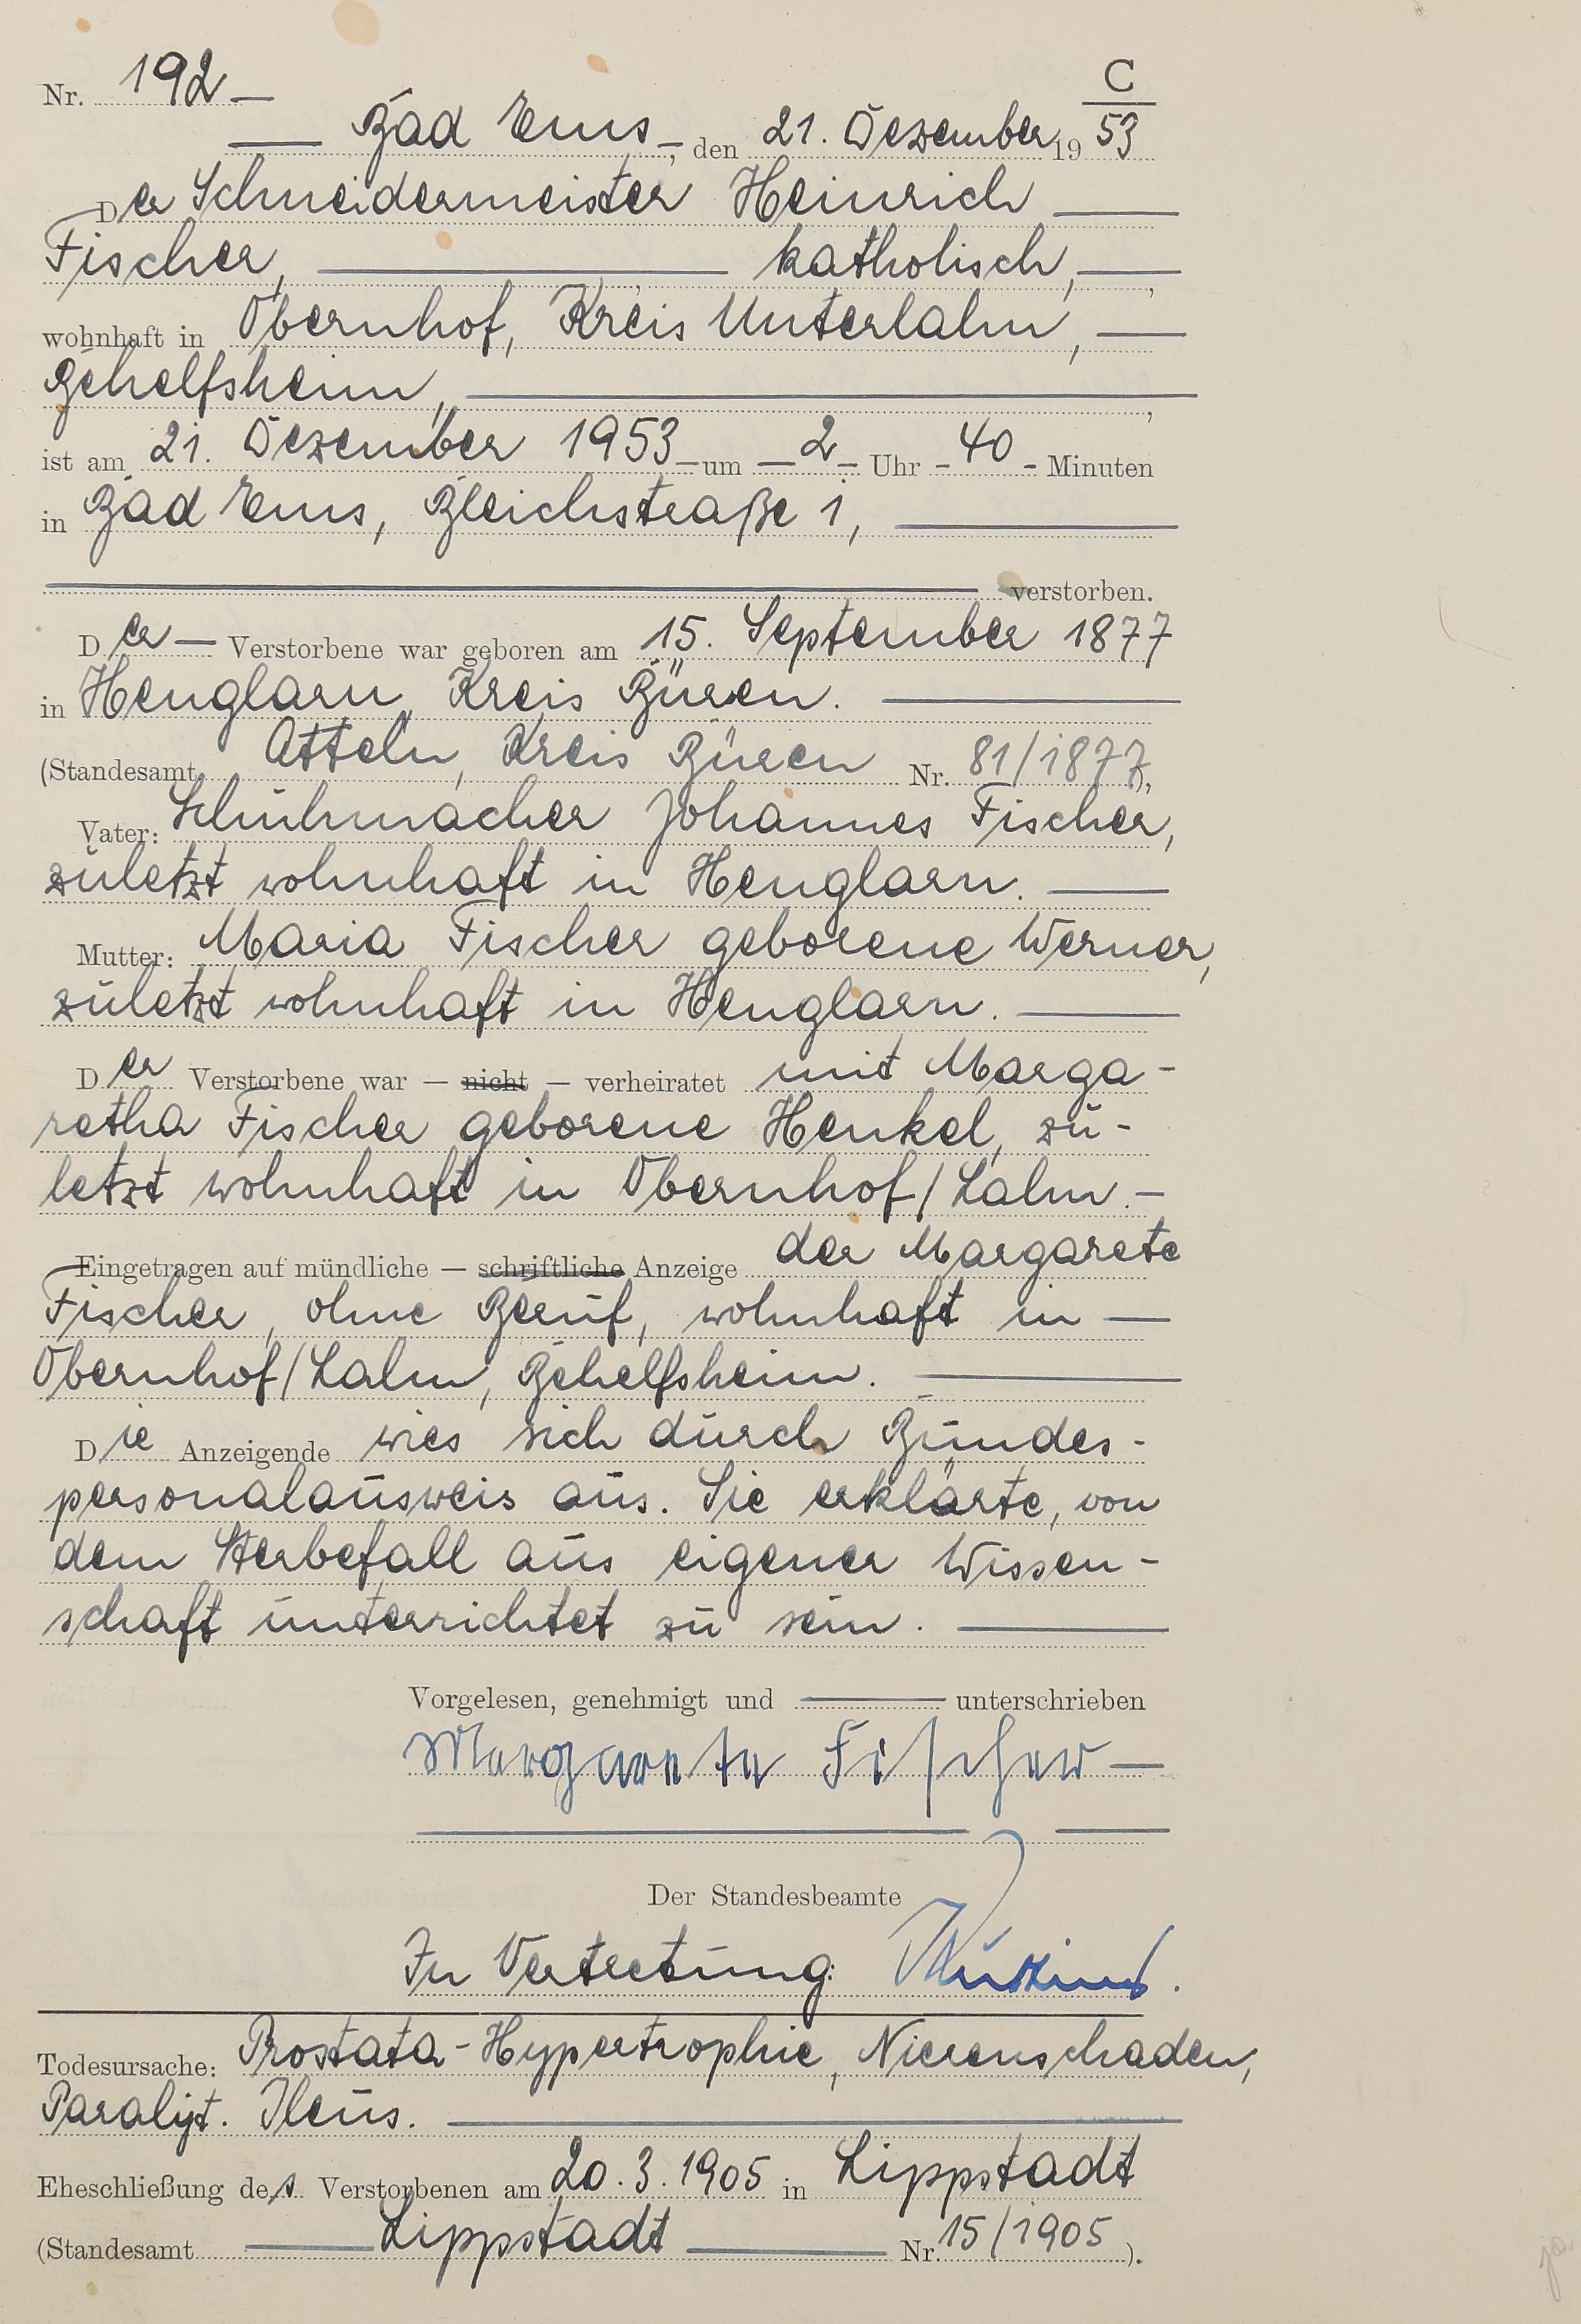 C
Nr. 192 —
— Bad Ems —, den 21. Dezember 1953
Der Schneidermeister Heinrich —
Fischer, — katholisch, —,
wohnhaft in Obernhof, Kreis Unterlahn, —
Behelfsheim, —,
ist am 21. Dezember 1953 — um — 2 — Uhr - 40 - Minuten
in Bad Ems, Bleichstraße 1, —
— verstorben.
Der — Verstorbene war geboren am 15. September 1877
in Henglarn, Kreis Büren. —
(Standesamt Atteln, Kreis Büren Nr. 81/1877),
Vater: Schuhmacher Johannes Fischer,
zuletzt wohnhaft in Henglarn. —
Mutter: Maria Fischer geborene Werner,
zuletzt wohnhaft in Henglarn. —
Der Verstorbene war — nicht — verheiratet mit Marga-
retha Fischer geborene Henkel, zu-
letzt wohnhaft in Obernhof/Lahn. —
Eingetragen auf mündliche — schriftliche Anzeige der Margarete
Fischer, ohne Beruf, wohnhaft in —
Obernhof/Lahn, Behelfsheim. —
Die Anzeigende wies sich durch Bundes-
personalausweis aus. Sie erklärte, von
dem Sterbefall aus eigener Wissen-
schaft unterrichtet zu sein. —
Vorgelesen, genehmigt und — unterschrieben
Margareta Fischer —
Der Standesbeamte
In Vertretung:
Todesursache: Prostata-Hypertrophie, Nierenschaden,
Paralyt. Ileus. —
Eheschließung des Verstorbenen am 20.3.1905 in Lippstadt
(Standesamt — Lippstadt — Nr. 15/1905 ).